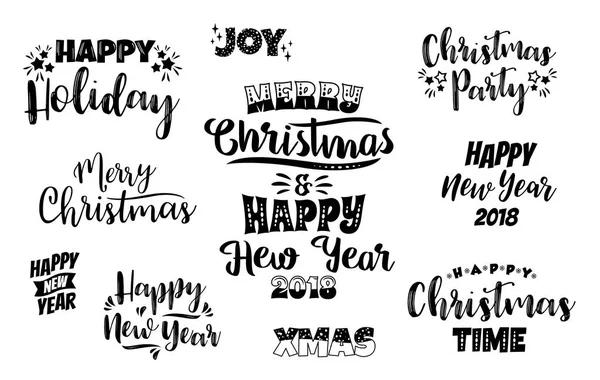 HAPPY
Holiday
JOY
Christmas
Party
MERRY
Christmas
&
HAPPY
New Year
2018
Merry
Christmas
HAPPY
New Year
2018
HAPPY
NEW
YEAR
Happy
New Year
XMAS
HAPPY
Christmas
TIME